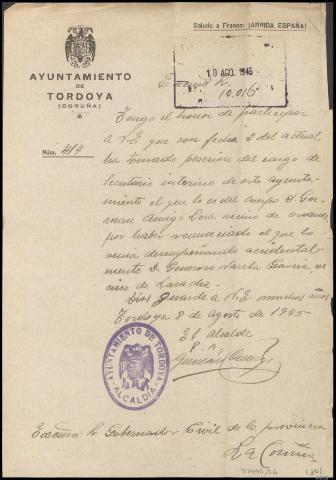 Saludo a Franco: ¡ARRIBA ESPAÑA!
AYUNTAMIENTO
DE
TORDOYA
(CORUÑA)
Núm. 417
10 AGO. 1945
10.016
Excmo Sr.
Tengo el honor de participar
a V.E. que con fecha 2 del actual
ha tomado posesión del cargo de
Secretario interino de este ayunta-
miento el que lo es del cuerpo D. Ger-
man Amigo Lra vecino de
por haber renunciado el que lo
venía desempeñando accidental-
mente D. Generoso Varela García ve-
cino de Laracha
Dios guarde a V.E. muchos años
Tordoya 8 de agosto de 1945
El alcalde
P.A.
AYUNTAMIENTO DE TORDOYA
ALCALDIA
Excmo Sr Gobernador Civil de la provincia
La Coruña
(30)